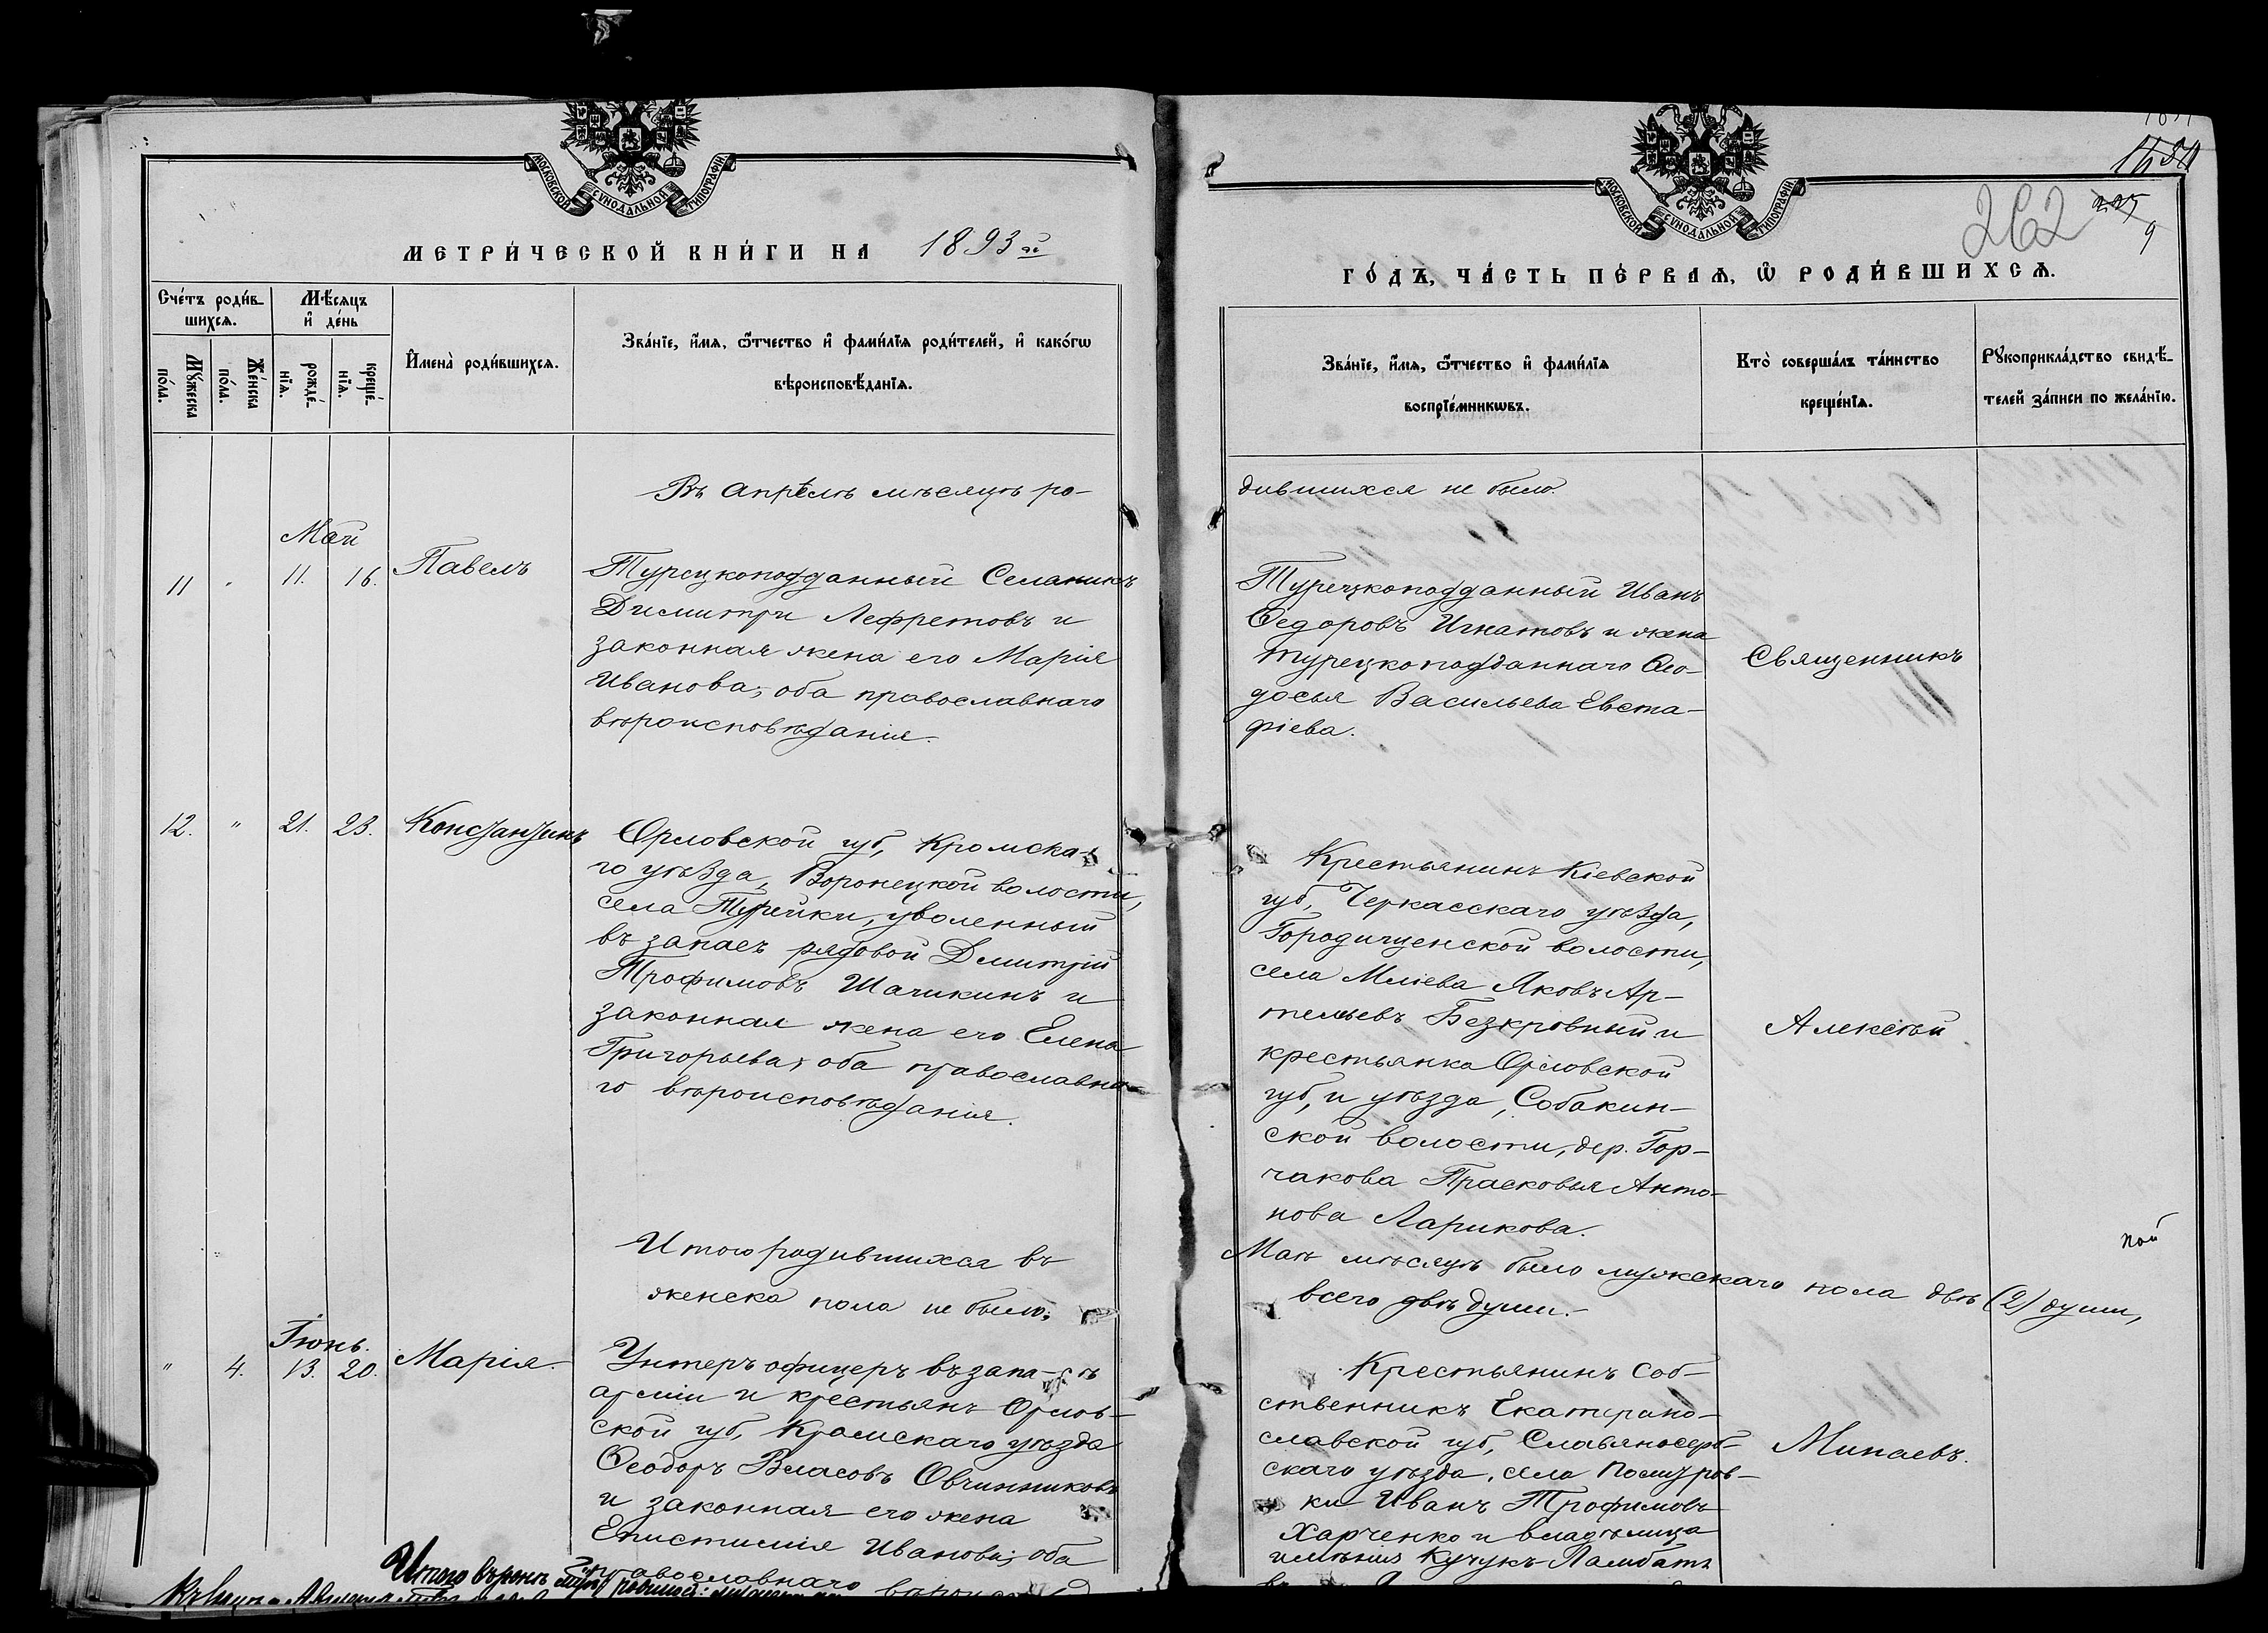 МОСКОВСКОЙ СѴНОДАЛЬНОЙ ТИПОГРАФІИ.
МЕТРИ́ЧЕСКОЙ КНИ́ГИ НА 1893 й
Сче́тъ роди́в-
шихсѧ.
Мѣ́сѧцъ
и҆ де́нь
И҆мена̀ роди́вшихсѧ.
Зва́нїе, и҆́мѧ, ѻ҆́тчество и҆ фами́лїѧ роди́телей, и҆ како́гѡ
вѣроисповѣ́данїѧ.
Мꙋ́жеска
по́ла.
Же́нска
по́ла.
рожде́-
нїѧ.
креще́-
нїѧ.
Въ Апрѣлѣ мѣсяцѣ ро-
Май
11 " 11. 16. Павелъ
Турецкоподданный Селаникъ
Димитри Лефретовъ и
законная жена его Марія
Иванова; оба православнаго
вѣроисповѣданія.
12. " 21. 23. Константинъ
Орловской губ, Кромска-
го уѣзда, Воронецкой волости,
села Турейки, уволенный
въ запасъ рядовой Дмитрій
Трофимовъ Шачикинъ и
законная жена его Елена
Григорьева; оба православна-
го вѣроисповѣданія.
Итого родившихся въ
женска пола не было;
Іюнь.
" 4. 13. 20. Марія.
Унтеръ офицеръ въ запасѣ
арміи и крестьянъ Орлов-
ской губ, Кромскаго уѣзда
Ѳеодоръ Власовъ Овчинниковъ
и законная его жена
Епистимія Иванова; оба
православнаго
Итого въ
МОСКОВСКОЙ СѴНОДАЛЬНОЙ ТИПОГРАФІИ.
262
9
ГО́ДЪ, ЧА́СТЬ ПЕ́РВАѦ, Ѡ҆ РОДИ́ВШИХСѦ.
Зва́нїе, и҆́мѧ, ѻ҆́тчество и҆ фами́лїѧ
воспрїе́мникѡвъ.
Кто̀ соверша́лъ та́инство
креще́нїѧ.
Рꙋкоприкла́дство свидѣ́-
телей за́писи по жела́нїю.
дившихся не было.
Турецкоподданный Иванъ
Ѳедоровъ Игнатовъ и жена
турецкоподданнаго Ѳео-
досья Васильева Евста-
фіева.
Священникъ
Крестьянинъ Кіевской
губ, Черкасскаго уѣзда,
Городищенской волости,
села Мліева Яковъ Ар-
темьевъ Безкровный и
крестьянка Орловской
губ, и уѣзда, Собакин-
ской волости, дер. Гор-
чакова Прасковья Анто-
нова Ларикова.
Алексѣй
Маѣ мѣсяцѣ было мужскаго пола двѣ (2) души,
всего двѣ души.-
Крестьянинъ соб-
ственникъ Екатерино-
славской губ, Славяносерб-
скаго уѣзда, села
ки Иванъ Трофимовъ
Харченко и владѣлица
имѣнія Кучукъ Ламбатъ
Минаевъ.